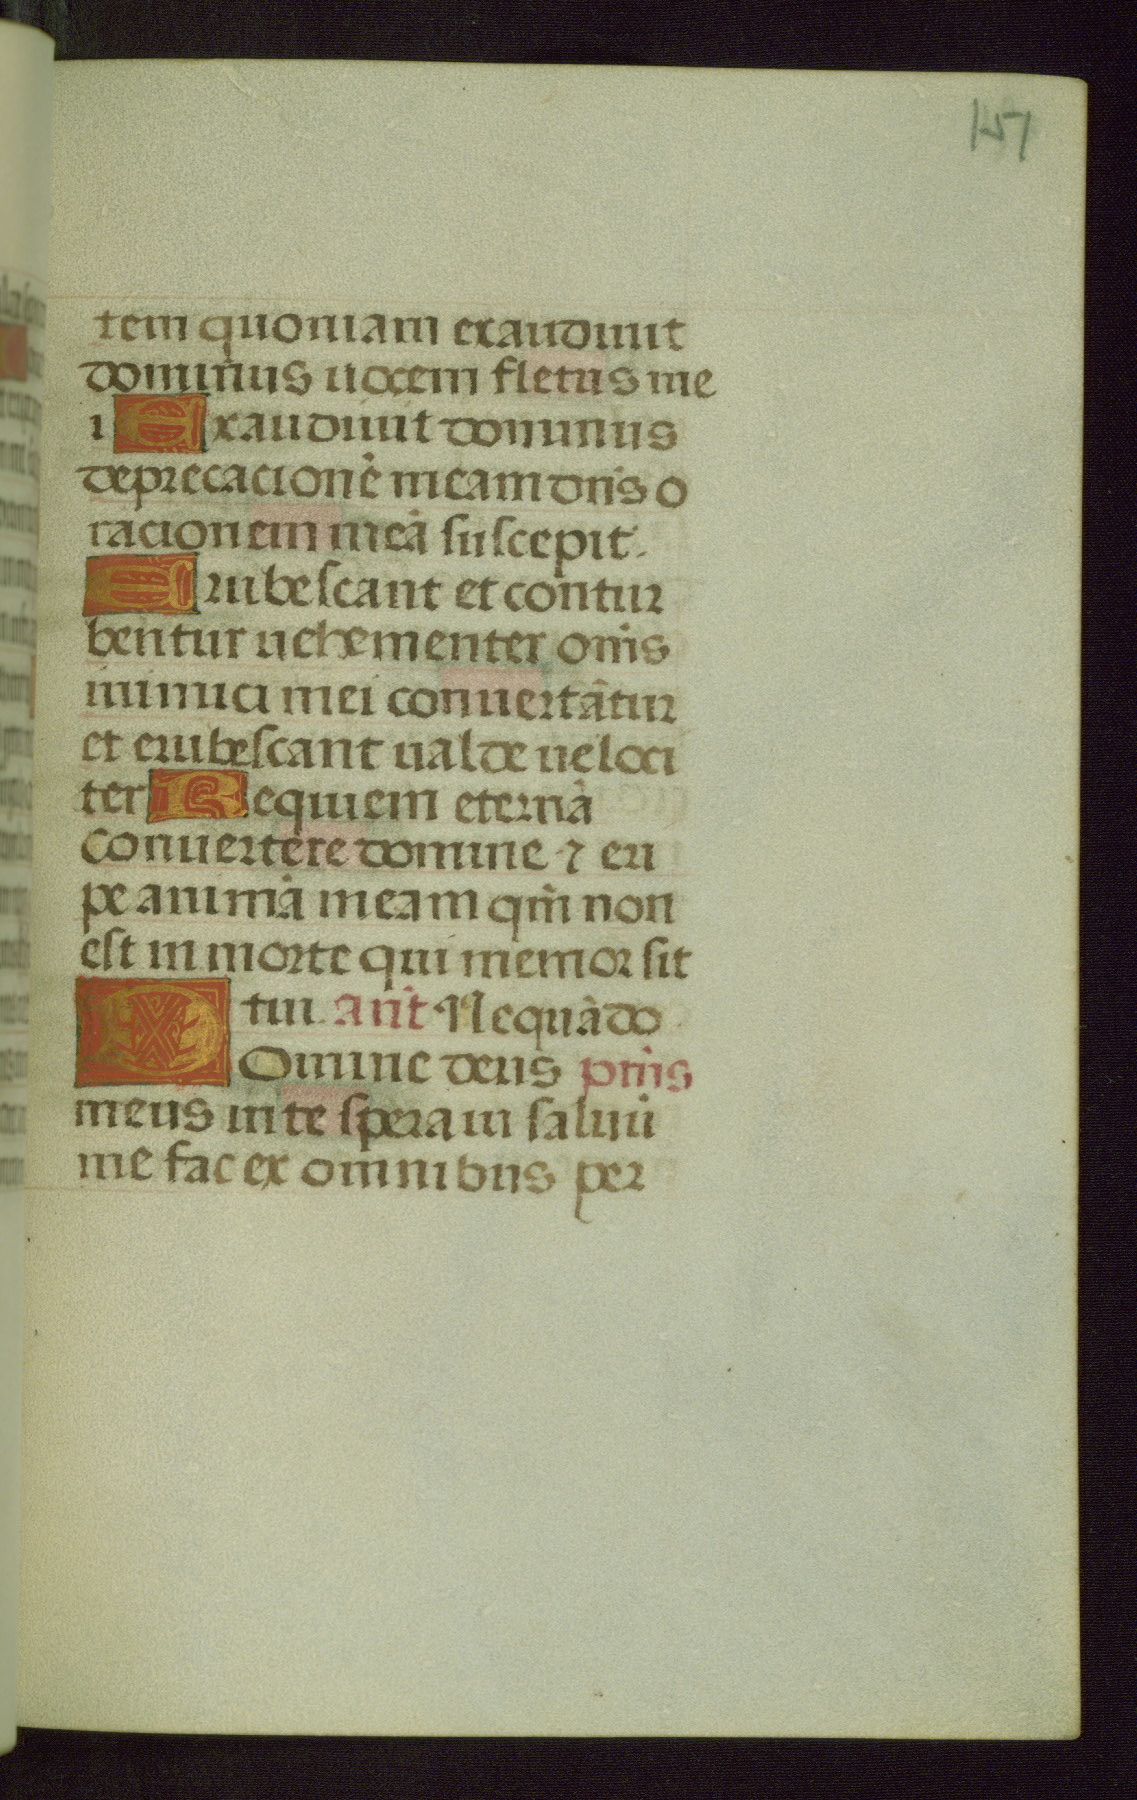 157
tem quoniam exaudiuit
dominus uocem fletus me
i Exaudiuit dominus
deprecacionē meam dn̄s o
racionem meā suscepit.
Erubescant et contur
bentur uehementer om̄s
inimici mei conuertātur
et erubescant ualde ueloci
ter Requiem eternā
Conuertere domine ⁊ eri
pe animā meam qm̄ non
est in morte qui memor sit
tui. an̄t Nequādo
Domine deus ps̄mus
meus in te speraui saluū
me fac ex omnibus per